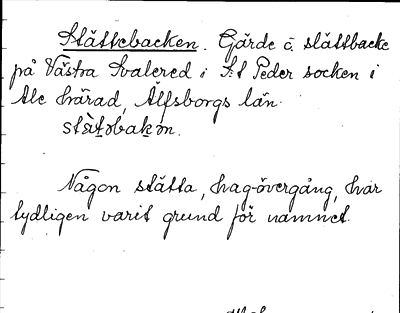 Stättebacken. Gärde o. slåttbacke
på Västra Svalered i S:t Peder socken i
Ale härad, Älfsborgs län.
Någon stätta, hag-övergång, har
tydligen varit grund för namnet.